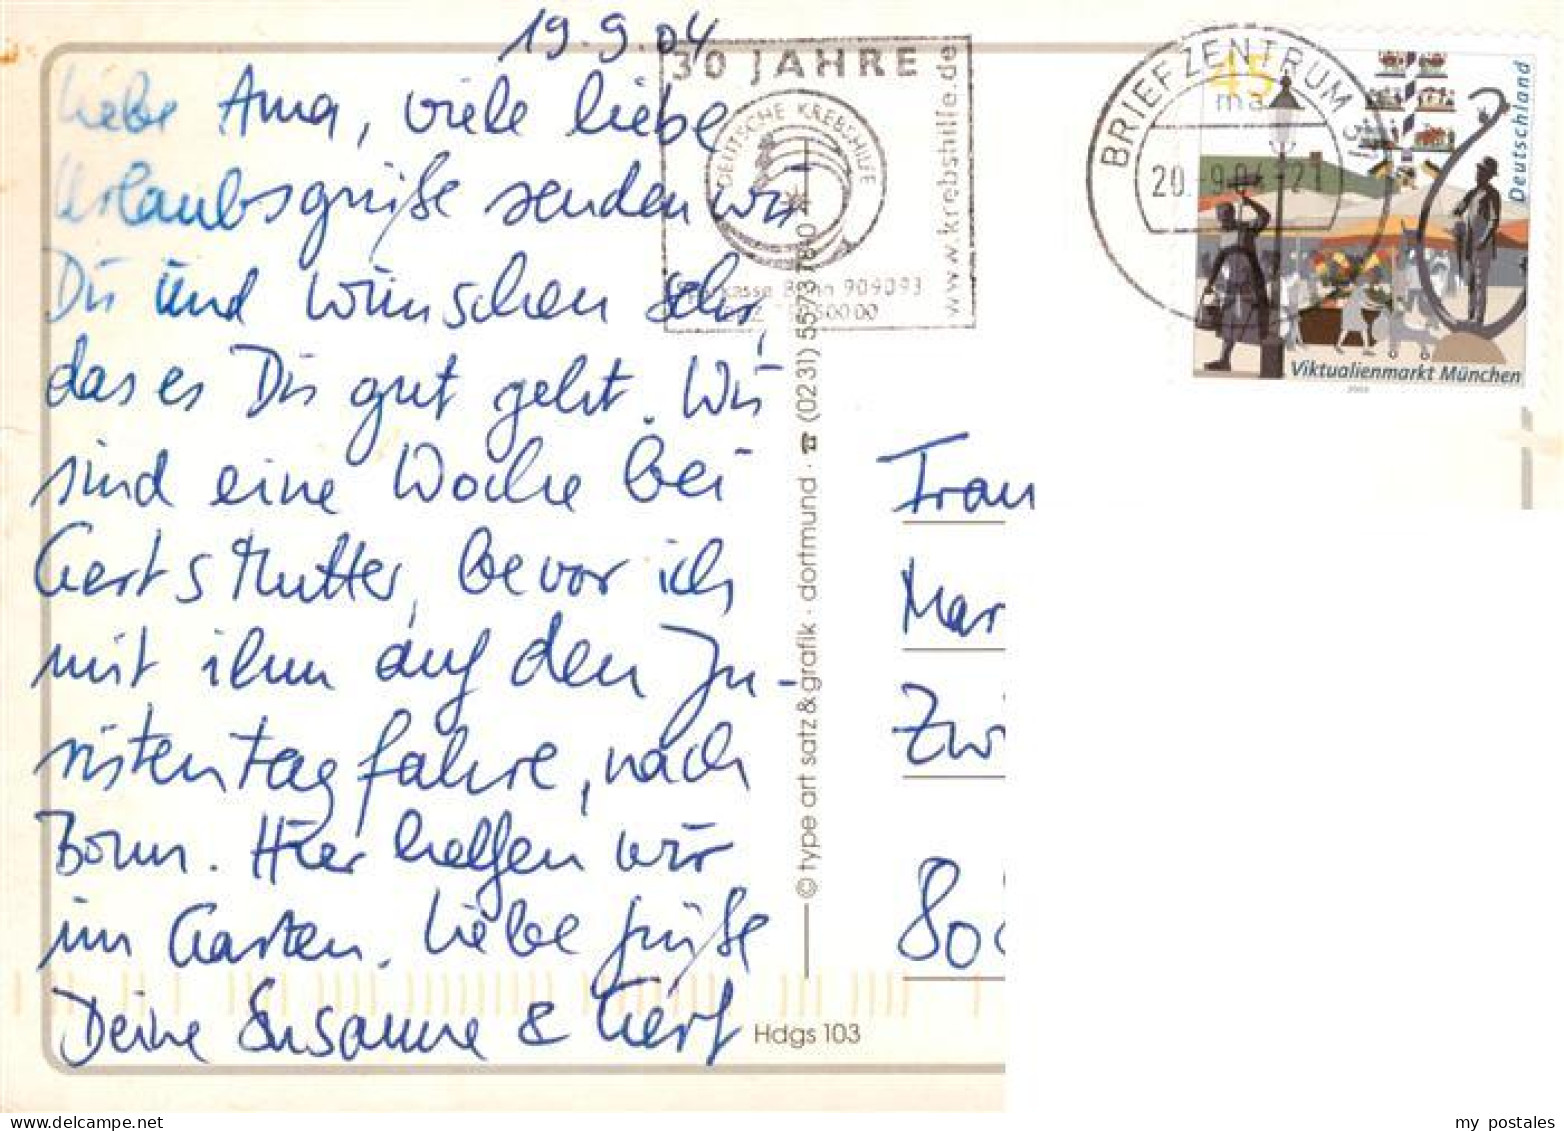 19.9.04
Liebe Anna, viele liebe
Urlaubsgrüße senden wir
Dir und wünschen sehr,
dass es Dir gut geht. Wir
sind eine Woche bei
Gerts Mutter, bevor ich
mit ihm auf den Ju-
ristentag fahre, nach
Bonn. Hier helfen wir
im Garten. Liebe Grüße
Deine Susanne & Gert
30 JAHRE
DEUTSCHE KREBSHILFE
www.krebshilfe.de
Sparkasse Bonn 909093
BRIEFZENTRUM
ma
20.-9.04-21
45
Deutschland
Viktualienmarkt München
2003
© type art satz & grafik · dortmund · ☎ (0231) 5573780
Frau
Mar
Zwi
Hdgs 103
my postales